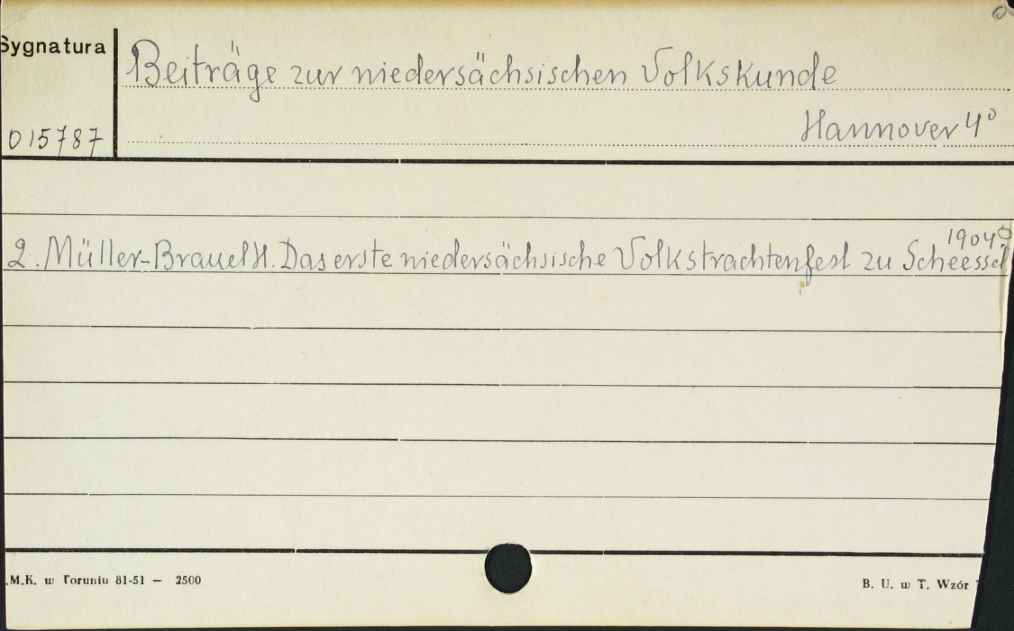 Sygnatura
Beiträge zur niedersächsischen Volkskunde
015787
Hannover 4°
1904
2. Müller-Brauel H. Das erste niedersächsische Volkstrachtenfest zu Scheessel
.M.K. w Toruniu 81-51 — 2500
B. U. w T. Wzór